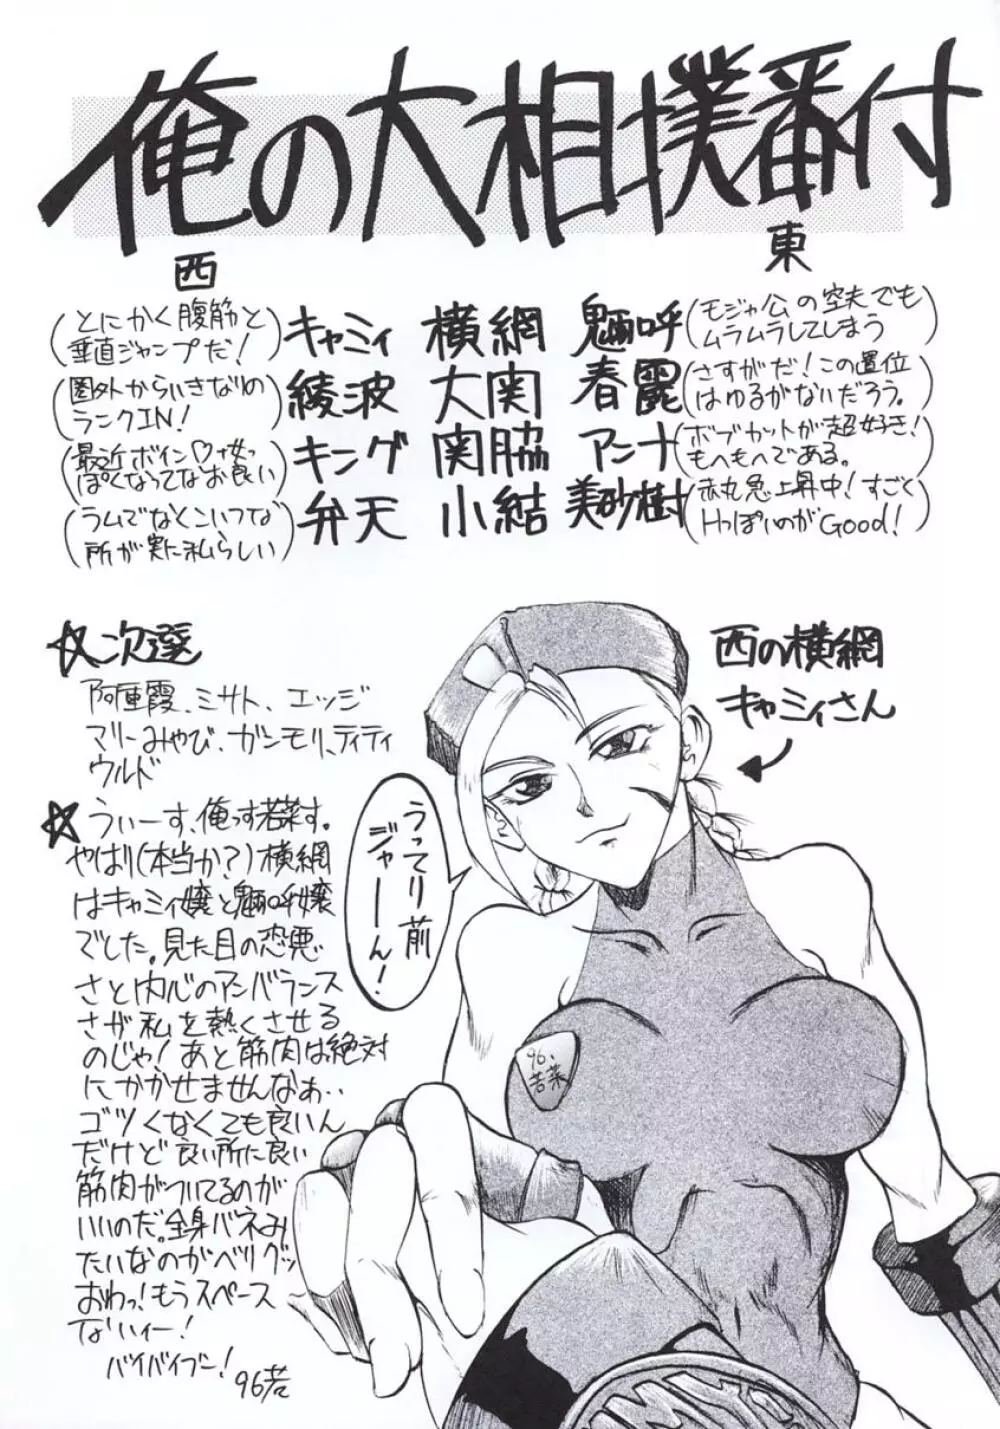 俺の大相撲番付
西
東
(とにかく腹筋と
垂直ジャンプだ!)
キャミィ 横綱 魎呼
(モジャ公の空夫でも
ムラムラしてしまう)
(圏外からいきなりの
ランクIN!)
綾波 大関 春麗
(さすがだ!この置位
はゆるがないだろう。)
(最近ボイン♡女っ
ぽくなってなお良い)
キング 関脇 アンナ
(ボブカットが超好き!
もへもへである。)
(ラムでなくこいつな
所が実に私らしい)
弁天 小結 美砂樹
(赤丸急上昇中!すごく
HっぽいのがGood!)
☆次選
阿重霞、ミサト、エッジ
マリーみやび、ガンモリ、ティティ
ウルド
西の横綱
キャミィさん
うってり前
ジャーーん!
☆うぃーす、俺っす若菜す。
やはり(本当か?)横綱
はキャミィ嬢と魎呼嬢
でした。見た目の恐悪
さと内心のアンバランス
さが私を熱くさせる
のじゃ!あと筋肉は絶対
にかかせませんなぁ‥
ゴツくなくても良いん
だけど良い所に良い
筋肉がついてるのが
いいのだ。全身バネみ
たいなのがベリグッ
おわっ!もうスペース
ないィー!
バイバイブー!
96若
96、
若菜